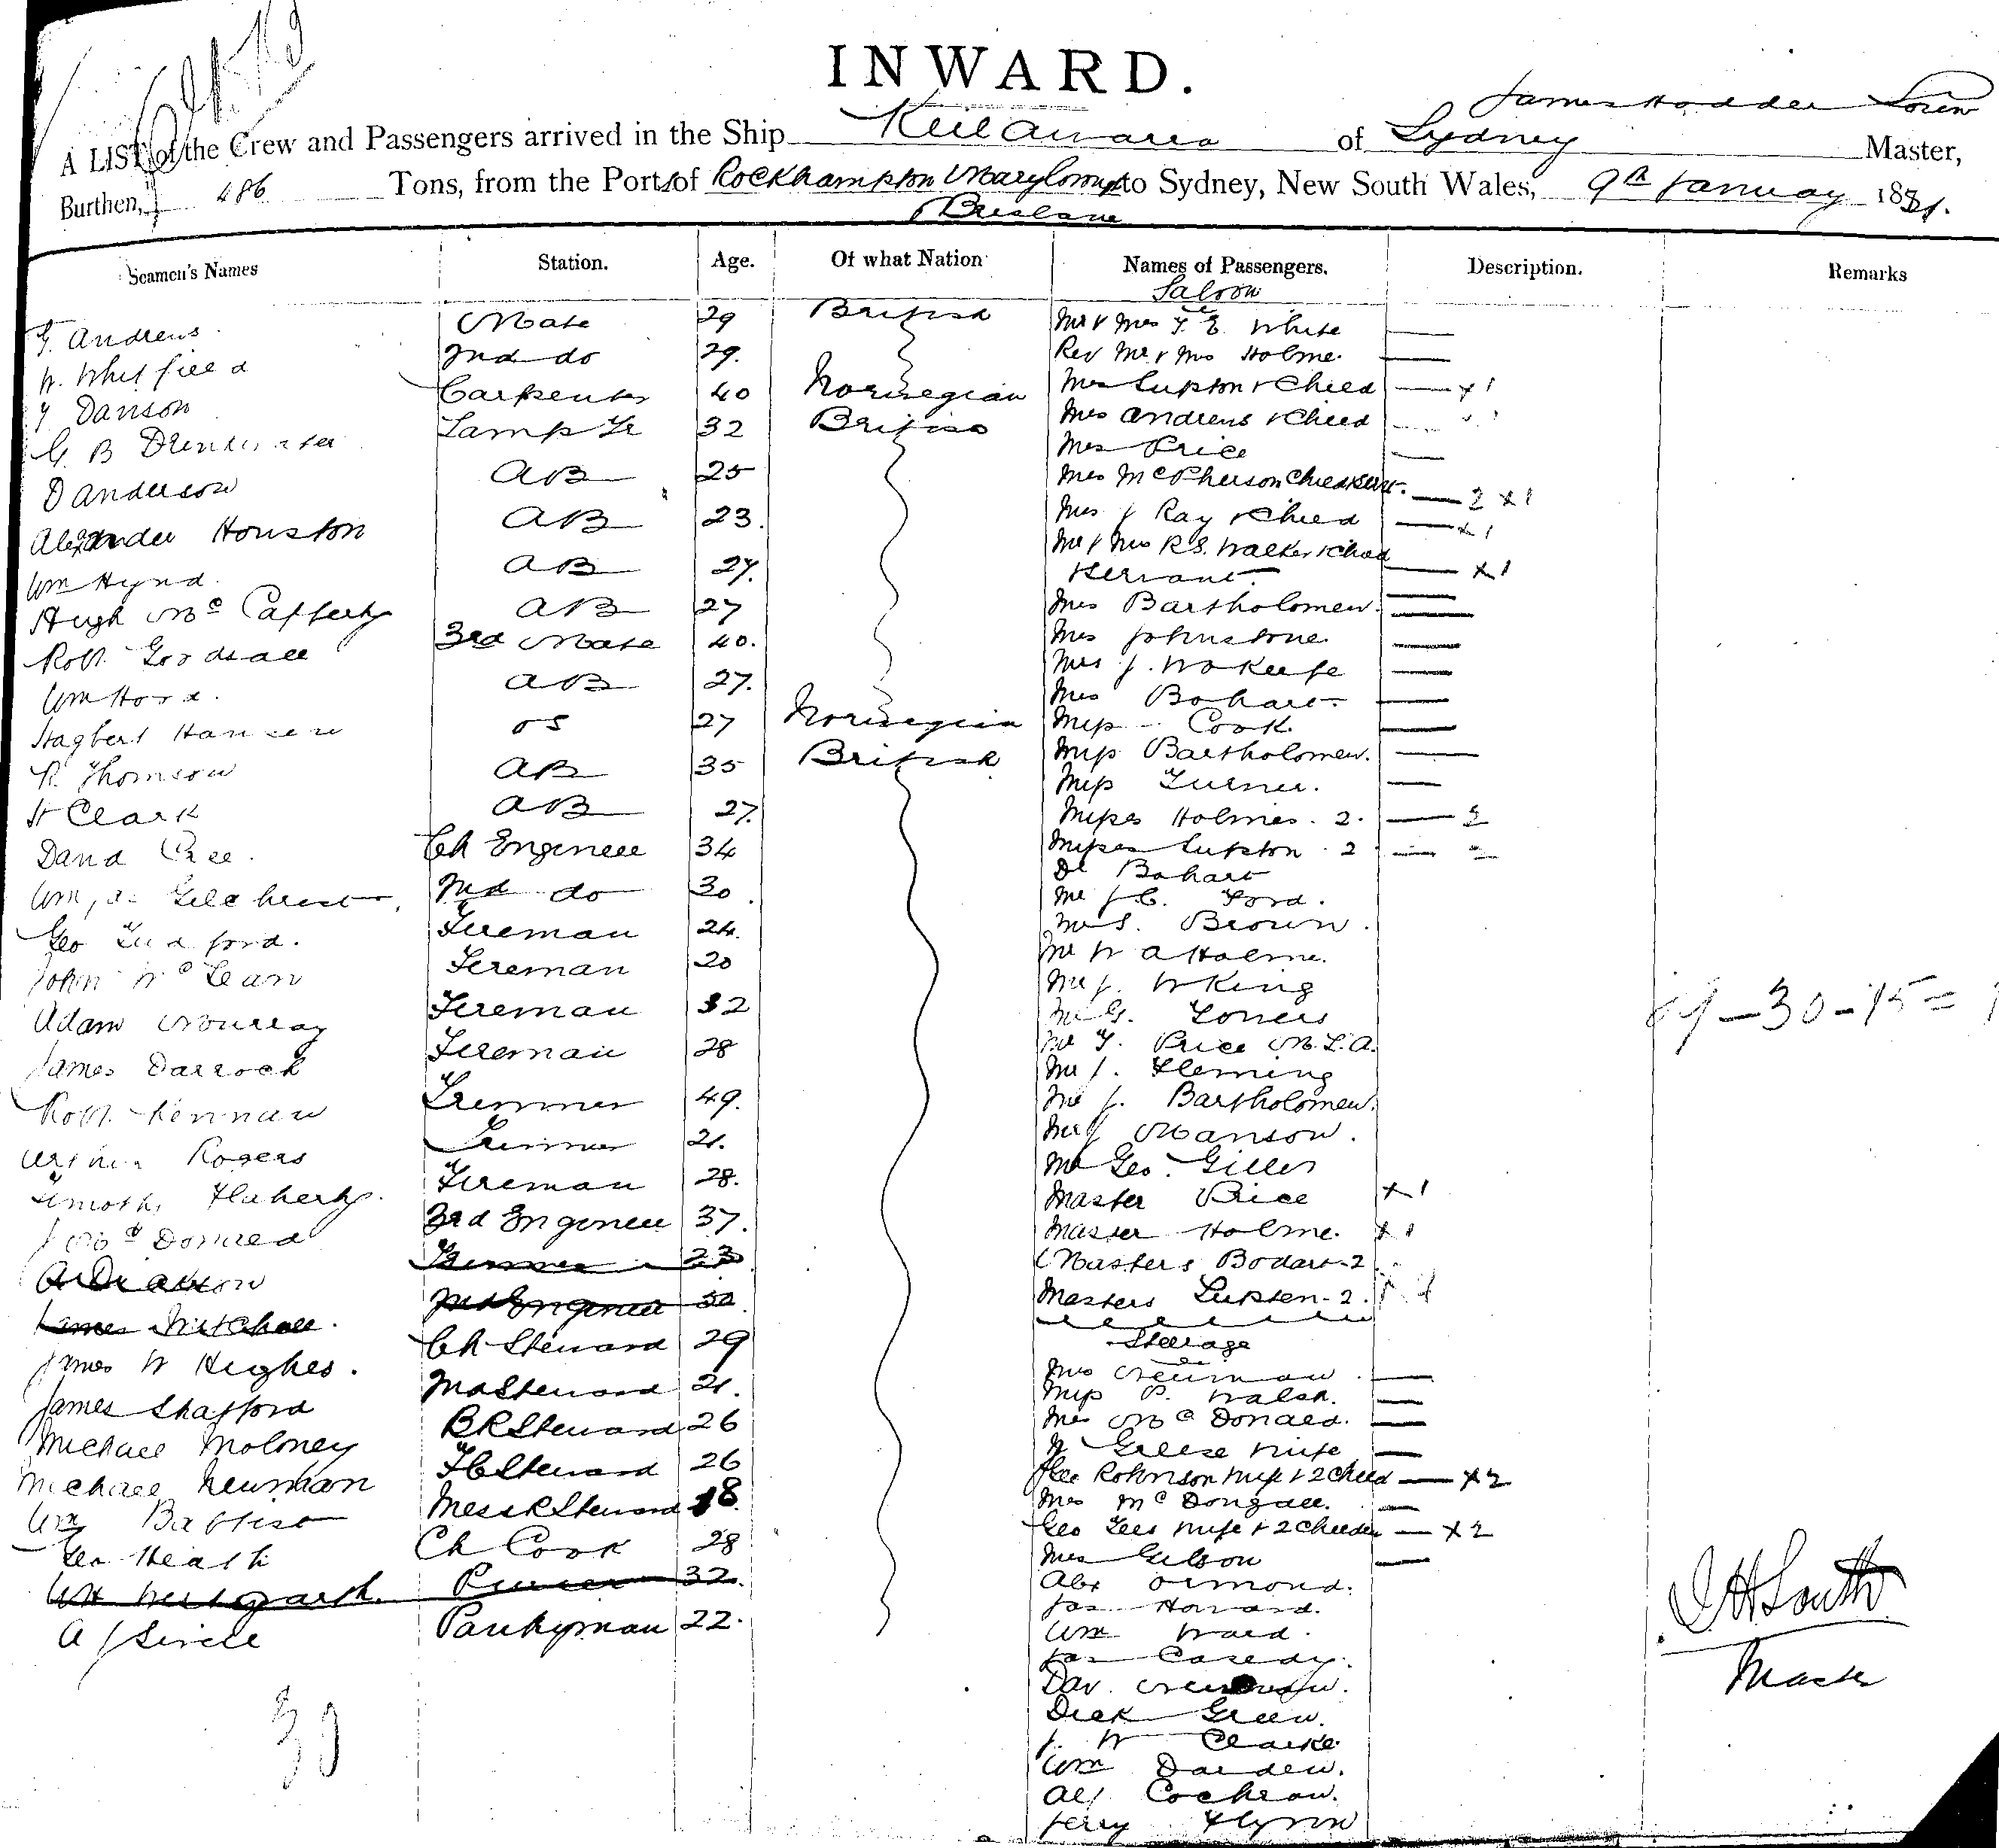 INWARD.
James Hodder
A LIST of the Crew and Passengers arrived in the Ship Keilawarra of Sydney Master,
Burthen, 486 Tons, from the Ports of Rockhampton Maryborough to Sydney, New South Wales, 9th January 1881.
Brisbane
Seamen's Names Station. Age. Of what Nation Names of Passengers. Description. Remarks
Saloon
Andrews Mate 29 British Mr & Mrs T. E. White
W. Whitfield 2nd do 29. Rev Mr & Mrs Holme.
Danson Carpenter 40 Norwegian Mrs Lupton & Child x 1
G. B Drinkwater Lamp Tr 32 British Mrs Andrews & Child
D Anderson AB 25 Mrs Price
Alexander Houston AB 23. Mrs McPherson Child & Servt. 2 x 1
Wm Hynd. AB 27. Mrs J Ray & Child x 1
Hugh McCafferty AB 27 Mr & Mrs R.S. Walker & Child
Servant x 1
Robt. Goodsall 3rd Mate 40. Mrs Bartholomew.
Wm Hord. AB 27. Mrs Johnstone
Hagbert Hansen OS 27 Norwegian Mrs J.
R. Thomson AB 35 British Mrs Bohart
H Clark AB 27. Miss Cook.
David Cree. Ch Engineer 34 Miss Bartholomew.
Gilchrist 2nd do 30 Miss Turner.
Geo Ludford. Fireman 24. Misses Holmes. 2. 2
John McLean Fireman 20 Misses Lupton 2
Adam Murray Fireman 32 Dr Bohart
James Darroch Fireman 28 Mr J. C. Ford.
Robt. Kennaw Trimmer 49. Mr S. Brown.
Arthur Rogers Trimmer 21. Mr W A Holme.
Timothy Flaherty. Fireman 28. Mr J. W King
J McDonald 3rd Engineer 37. Mr G.
23 Mr T. Price M.L.A.
James Mitchell. 2nd Engineer Mr J. Fleming
James W Hughes. Ch Steward 29 Mr J. Bartholomew.
James Shafford 2nd Steward 21. Mr J Manson.
Michael Moloney BR Steward 26 Mr Geo. Gilles
Michael Newman FC Steward 26 Master Price x 1
Wm Baptist Mess R Steward 18. Master Holme. x 1
Geo Heath Ch Cook 28 Masters Bodart - 2
32. Masters Lupton - 2.
A J Sircle Pantryman 22.
Steerage
Mrs Newman
Miss P. Walsh.
Mrs McDonald.
Wife
Geo Robinson Wife & 2 Child x 2
Mrs McDougall.
Geo Lees Wife & 2 Children x 2
Mrs Gibson
Alex Ormond.
Jas Howard.
Wm Ward.
Jas Casedy.
Dav.
Dick Green.
J. W Clarke.
Wm Darden.
Alf. Cochran.
Jerry Flynn
69 - 30 - 15 =
J H South
Mack
30